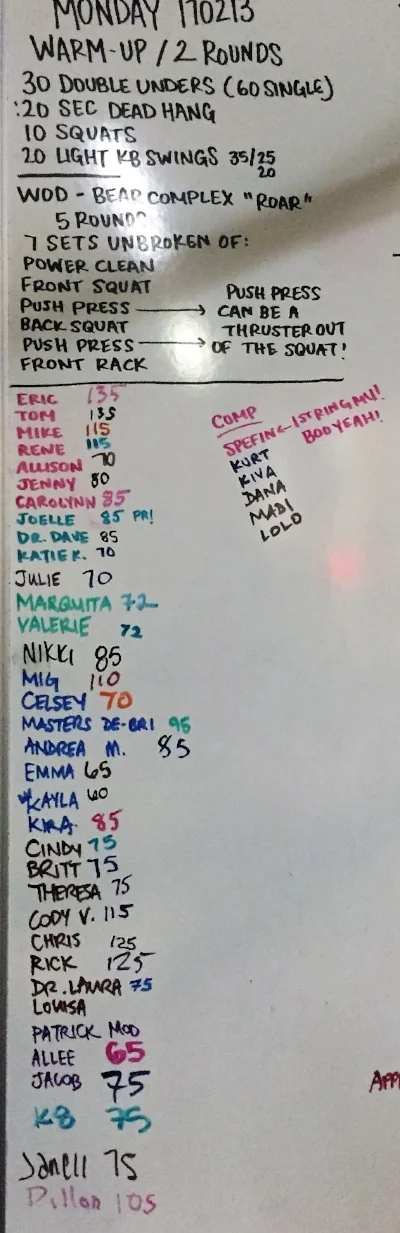 MONDAY 170213
WARM-UP / 2 ROUNDS
30 DOUBLE UNDERS (60 SINGLE)
:20 SEC DEAD HANG
10 SQUATS
20 LIGHT KB SWINGS 35/25
20
WOD - BEAR COMPLEX "ROAR"
5 ROUNDS
7 SETS UNBROKEN OF:
POWER CLEAN
FRONT SQUAT
PUSH PRESS → PUSH PRESS CAN BE A
BACK SQUAT THRUSTER OUT
PUSH PRESS → OF THE SQUAT!
FRONT RACK
ERIC 135
TOM 135
MIKE 115
RENE 115
ALLISON 70
JENNY 80
CAROLYNN 85
JOELLE 85 PR!
DR. DAVE 85
KATIE K. 70
JULIE 70
MARQUITA 72
VALERIE 72
NIKKI 85
MIG 110
CELSEY 70
MASTERS DE-BRI 95
ANDREA M. 85
EMMA 65
KAYLA 60
KIRA 85
CINDY 75
BRITT 75
THERESA 75
CODY V. 115
CHRIS 125
RICK 125
DR. LAURA 75
LOUISA
PATRICK MOD
ALLEE 65
JACOB 75
K8 75
Janell 75
Dillon 105
COMP
SPEFIN ← 1ST RING MU!
BOO YEAH!
KURT
KIVA
DANA
MADI
LOLO
APP